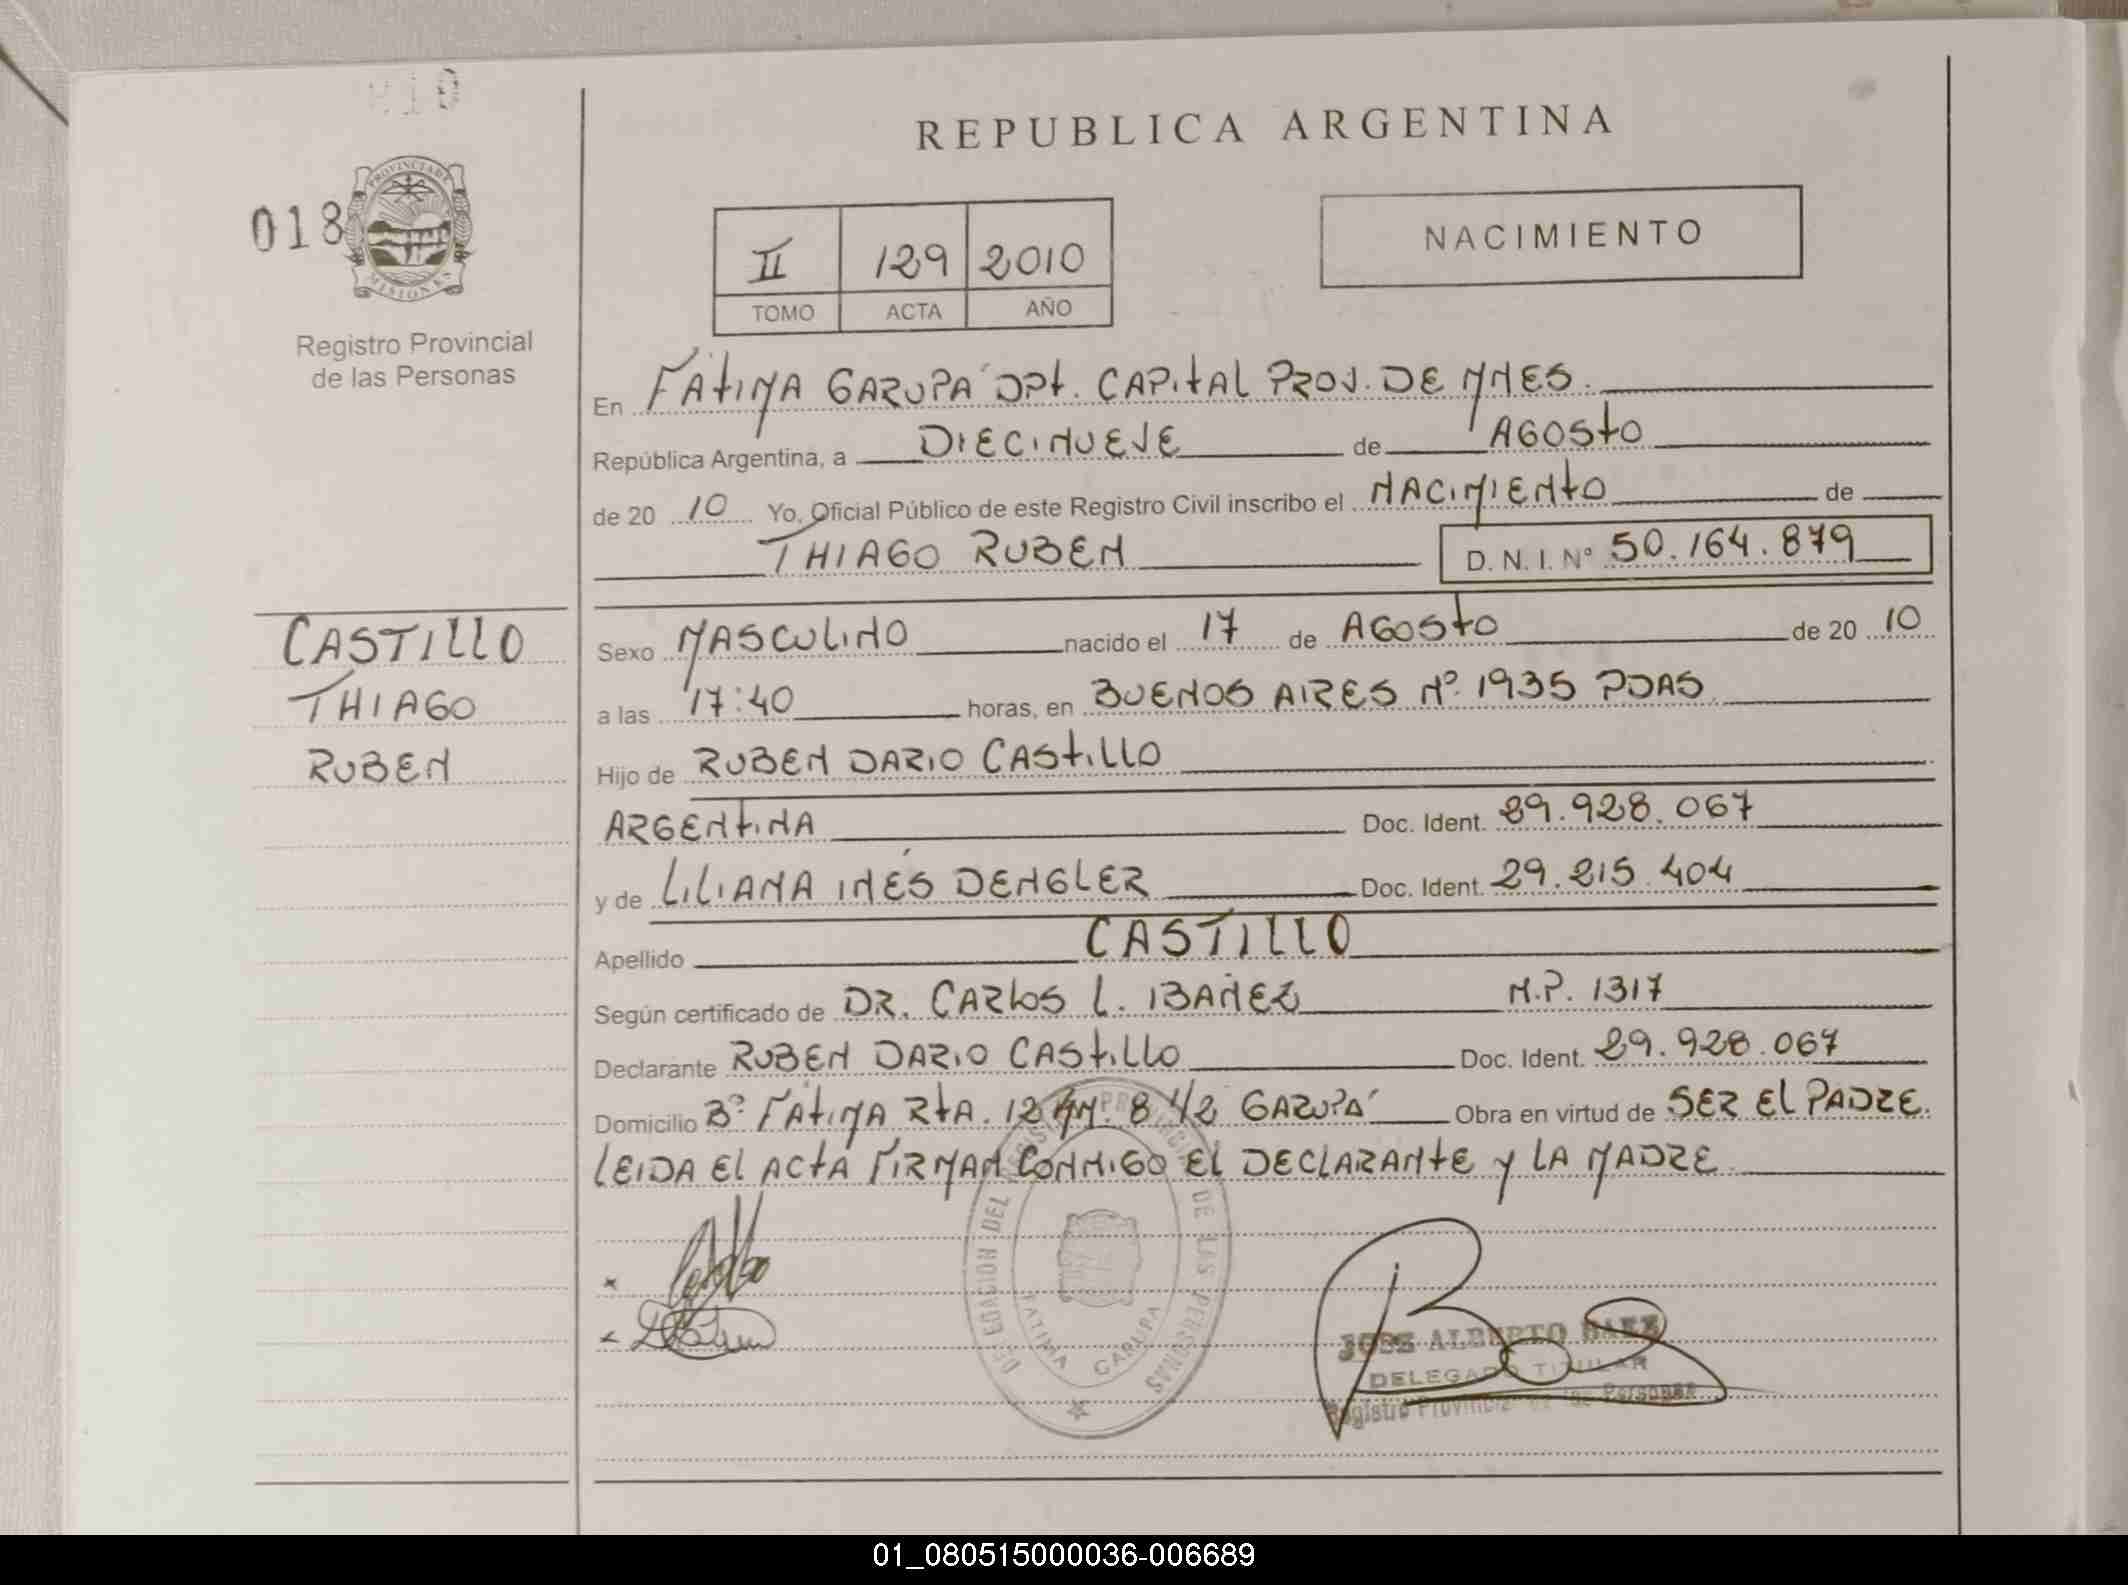 010
018
PROVINCIA DE
MISIONES
Registro Provincial
de las Personas
REPUBLICA ARGENTINA
II 129 2010
TOMO ACTA AÑO
NACIMIENTO
En FÁTIMA GARUPÁ DPt. CAPITAL PROV. DE MNES.
República Argentina, a DIECINUEVE de AGOSTO
de 20 10 Yo, Oficial Público de este Registro Civil inscribo el NACIMIENTO de
THIAGO RUBEN D.N.I. Nº 50.164.879
CASTILLO
THIAGO
RUBEN
Sexo MASCULINO nacido el 17 de AGOSTO de 20 10
a las 17:40 horas, en BUENOS AIRES Nº 1935 PDAS
Hijo de RUBEN DARIO CASTILLO
ARGENTINA Doc. Ident. 29.928.067
y de LILIANA INÉS DENGLER Doc. Ident. 29.215.404
Apellido CASTILLO
Según certificado de DR. CARLOS L. IBAÑEZ M.P. 1317
Declarante RUBEN DARIO CASTILLO Doc. Ident. 29.928.067
Domicilio Bº FÁTIMA RTA. 12 KM. 8 1/2 GARUPÁ Obra en virtud de SER EL PADRE.
LEIDA EL ACTA FIRMAN CONMIGO EL DECLARANTE Y LA MADRE
DELEGACION DEL REGISTRO PROVINCIAL DE LAS PERSONAS
FATIMA GARUPA
JOSE ALBERTO BAEZ
DELEGADO TITULAR
Registro Provincial de las Personas
01_080515000036-006689